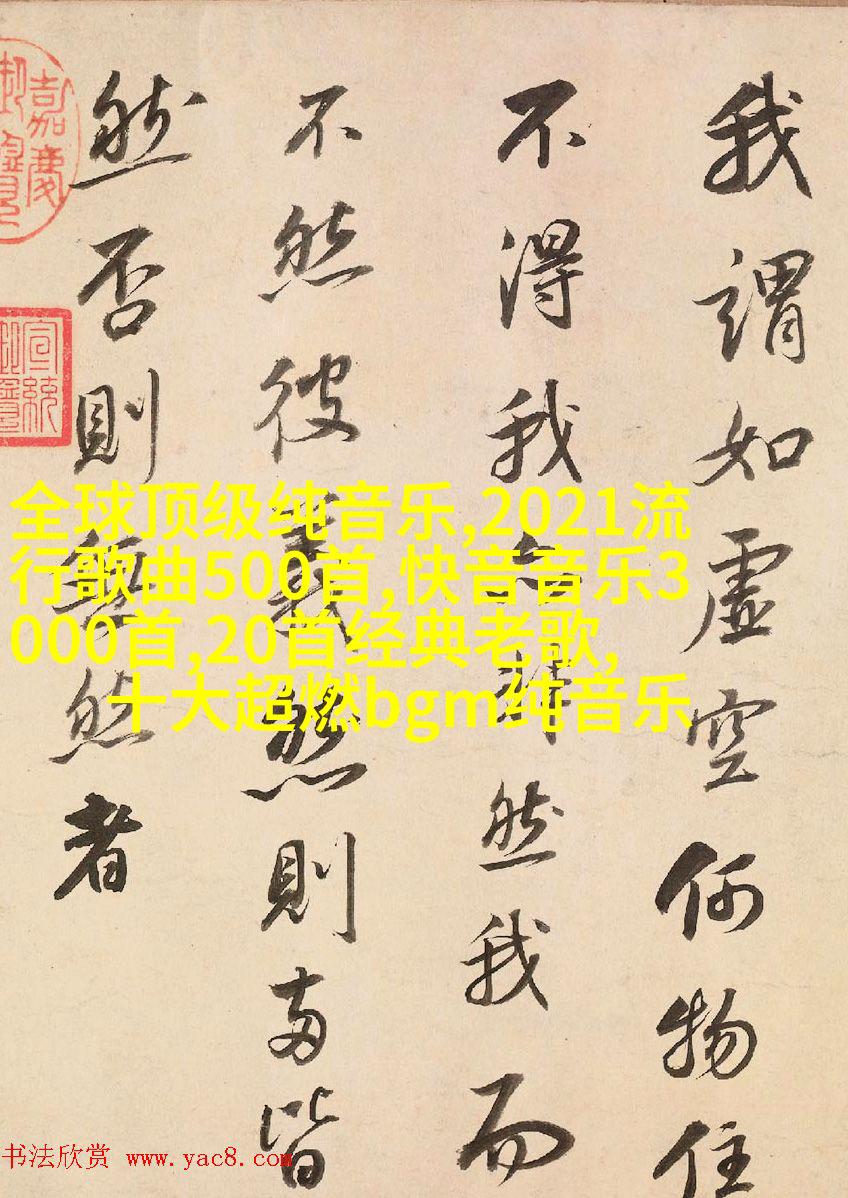 我謂如虛空何物住
不得我 然我而
不然彼義然則兩皆
然否則無然者
嘉慶
御覽
宣統
全球顶级纯音乐,2021流
行歌曲500首,快音音乐3
000首,20首经典老歌,
十大超燃bgm纯音乐
书法欣赏 www.yac8.com